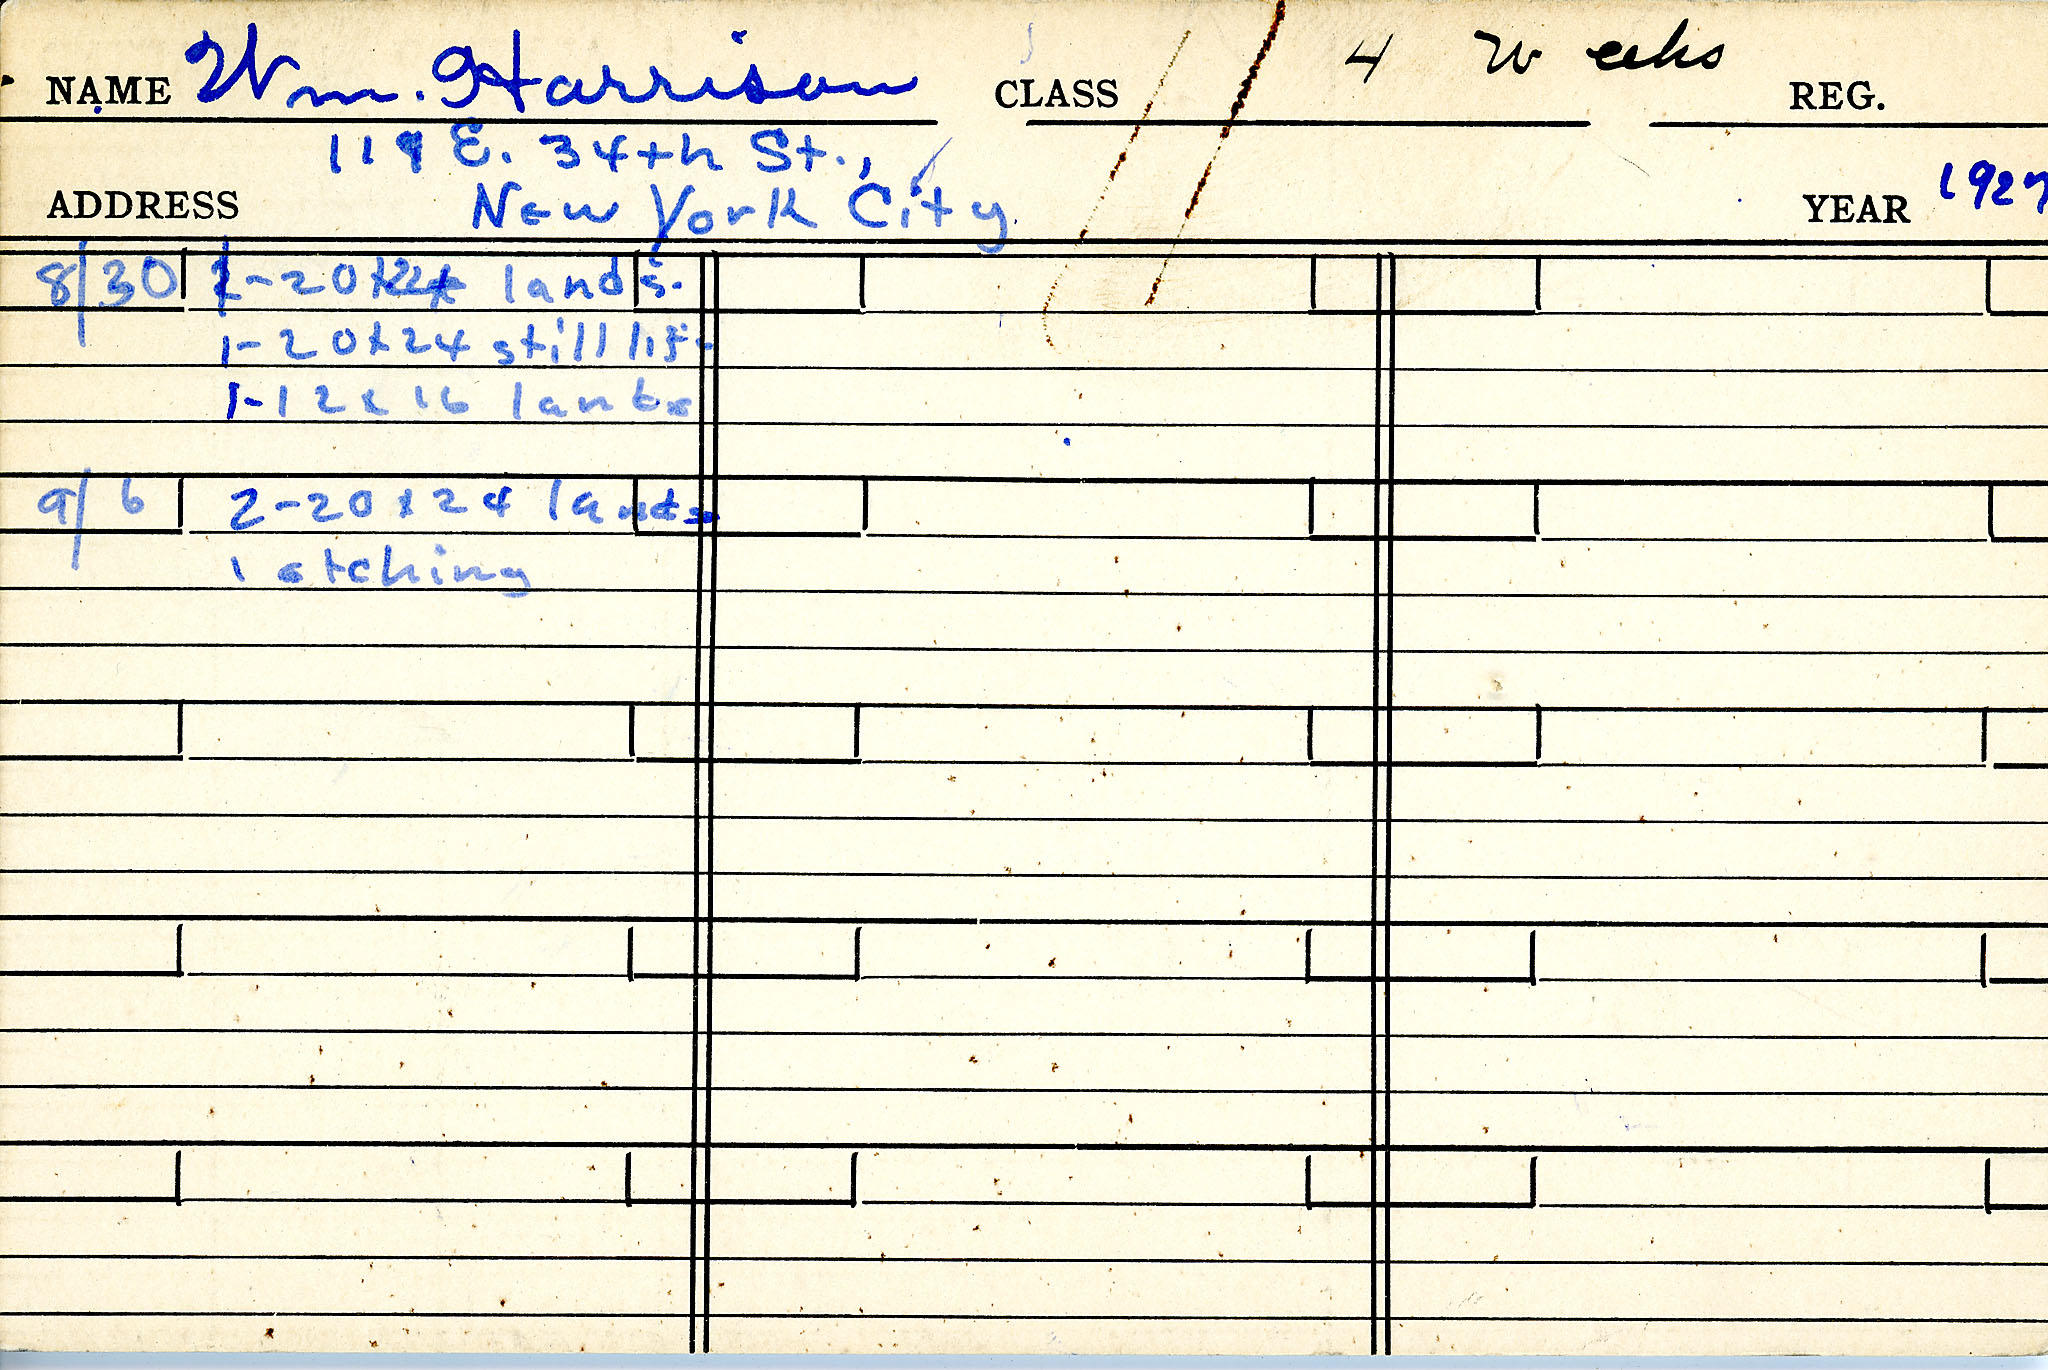 NAME Wm. Harrison CLASS 4 Weeks REG.
119 E. 34th St.,
ADDRESS New York City YEAR 1927
8/30 2-20x24 lands.
1-20x24 still life
1-12x16 lands
9/6 2-20x24 lands
1 etching